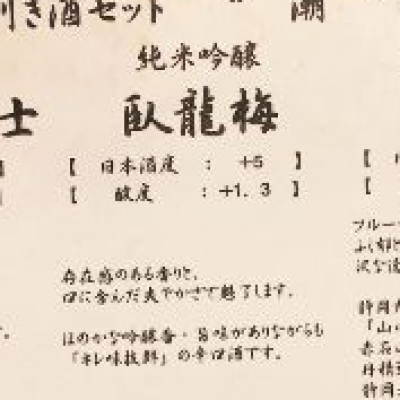 利き酒セット
潮
純米吟醸
士 臥龍梅
【 日本酒度 : +5 】
【 酸度 : +1.3 】
存在感のある香りと、
口に含んだ爽やかさで魅了します。
ほのかな吟醸香・旨味がありながらも
「キレ味抜群」の辛口酒です。
フルー
ふく郁と
沢な
静岡
「山
赤石山
丹精
静岡